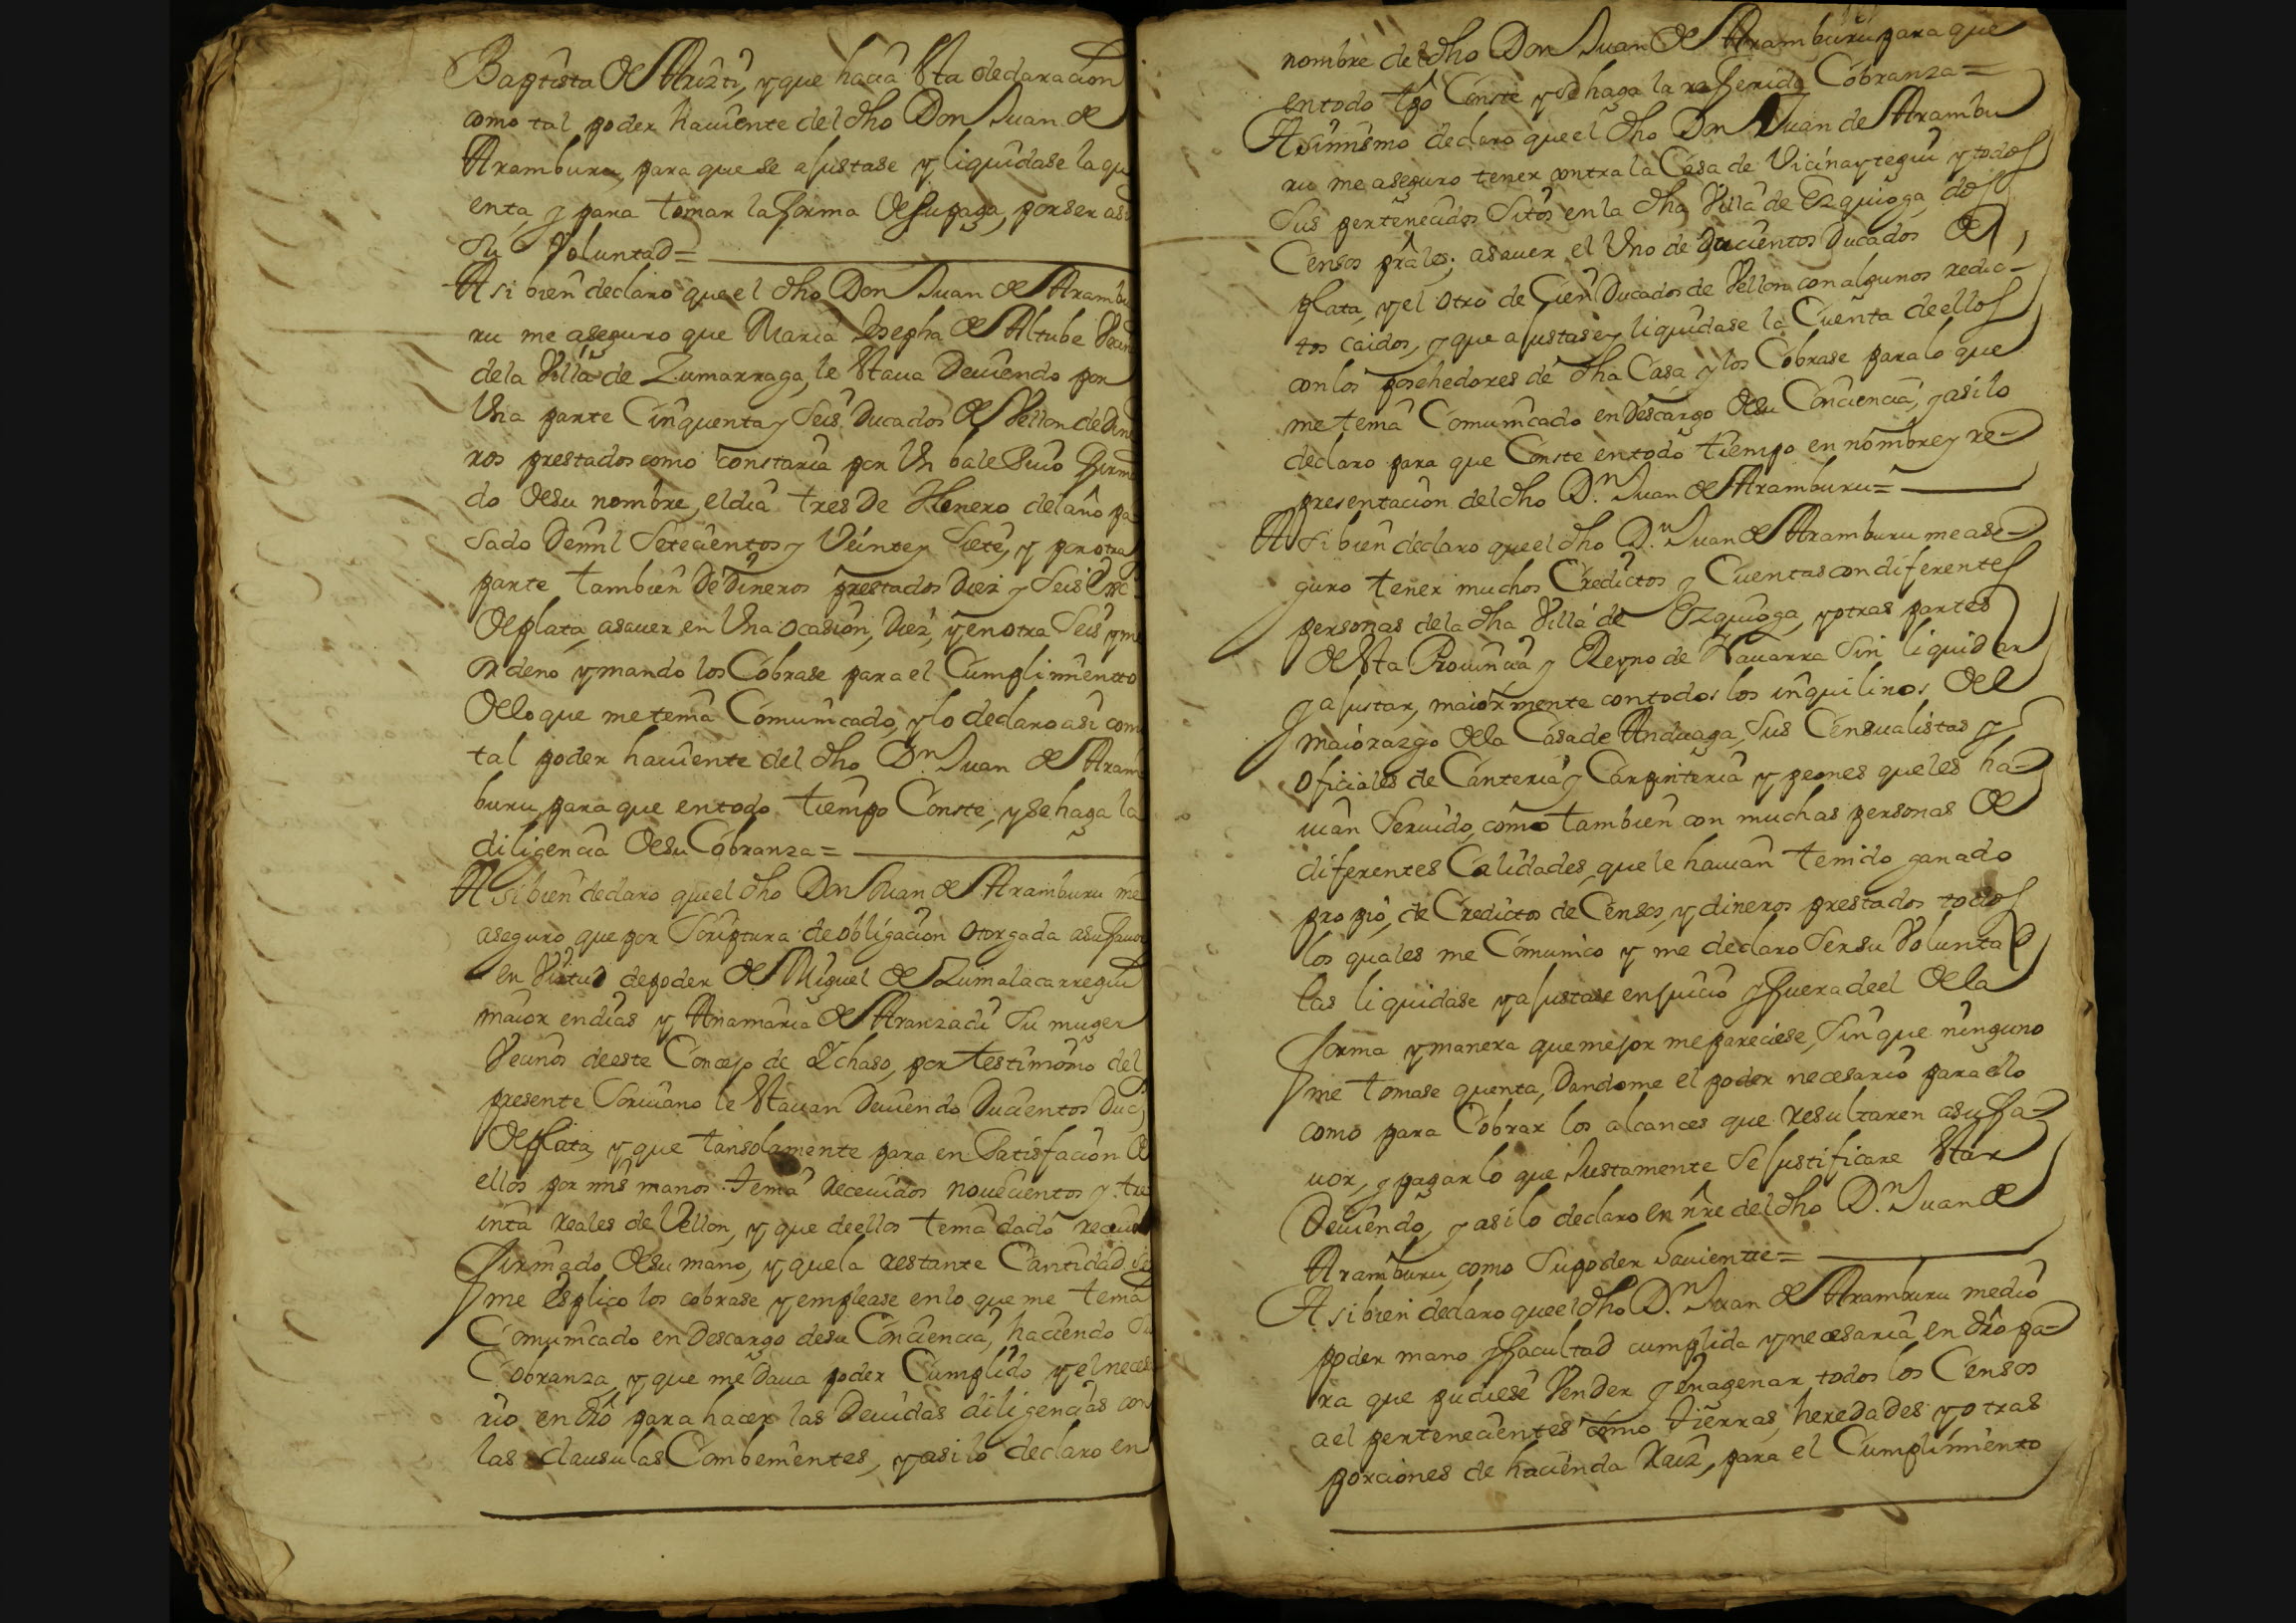 Baptista de Arizti, y que hacia esta declaracion
como tal poder haviente del dho Don Juan de
Aramburu, para que se ajustase y liquidase la qu
enta, y para tomar la forma de su paga, por ser asi
su Voluntad=
Asi bien declaro que el dho Don Juan de Arambu
ru me aseguro que Maria Josepha de Altube Vecina
dela Villa de Zumarraga, le estava deviendo por
Una parte Cinquenta y seis Ducados de Vellon de Dine
ros prestados como constaria por Un bale suio firma
do de su nombre, el dia tres de Henero del año pa
sado de mil setecientos y Veinte y siete, y por otra
parte tambien de Dineros prestados Diez y seis
de plata, asaver en Una ocasion, Diez, y en otra seis y me
ordeno y mando los Cobrase para el Cumplimiento
de lo que me tenia Comunicado, y lo declaro asi como
tal poder haviente del dho Dn Juan de Aram
buru, para que en todo tiempo Conste, y se haga la
diligencia de su Cobranza=
Asi bien declaro que el dho Don Juan de Aramburu me
aseguro que por scriptura de obligacion otorgada a su favor
en Virtud de poder de Miguel de Zumalacarregui
maior en dias y Ana maria de Aranzadi su muger
Vecinos de este Concejo de Ychaso, por testimonio del
presente scrivano le estavan Deviendo Ducientos Duc.s
de plata, y que tan solamente para en satisfacion de
ellos por mis manos tenia recevidos novecientos y tre
inta reales de Vellon, y que de ellos tenia dado recivo
firmado de su mano, y que la restante Cantidad
me esplico los cobrase y emplease en lo que me tenia
Comunicado en Descargo de su Conciencia, haciendo su
Cobranza, y que me dava poder Cumplido y el necesa
rio en dro para hacer las Devidas diligencias con
las clausulas Combenientes, y asi lo declaro en
nombre del dho Don Juan de Aramburu para que
en todo tpo Conste y se haga la referida Cobranza=
Asimismo declaro que el dho Don Juan de Arambu
ru me aseguro tener contra la Casa de Vicinaytegui y todos
sus pertenecidos sitos en la dha Villa de Ezquioga, dos
Censos prales; asaver el Uno de Ducientos Ducados de
plata, y el otro de Cien Ducados de Vellon con algunos redi-
tos caidos, y que ajustase y liquidase la Cuenta de ellos
con los poshedores de dha Casa y los Cobrase para lo que
me tenia Comunicado en Descargo de su Conciencia, y asi lo
declaro para que Conste en todo tiempo en nombre y re-
presentacion del dho Dn Juan de Aramburu=
Asi bien declaro que el dho Dn Juan de Aramburu me ase-
guro tener muchos Credictos y Cuentas con diferentes
personas dela dha Villa de Ezquioga, y otras partes
de esta Provincia y Reyno de Navarra sin liquidar
y ajustar, maiormente con todos los inquilinos del
maiorazgo dela Casa de Anduaga, sus Censualistas y
oficiales de Canteria y Carpinteria y peones que les ha-
vian servido, como tambien con muchas personas de
diferentes Calidades, que le havian tenido ganado
propio, de Credictos de Censos, y dineros prestados todos
los quales me Comunico y me declaro ser su Voluntad
las liquidase y ajustase en juicio y fuera de el dela
forma y manera que mejor me pareciese, sin que ninguno
me tomase quenta, dandome el poder necesario para ello
como para Cobrar los alcances que resultaren a su fa-
vor, y pagar lo que Justamente se justificare estar
Deviendo, y asi lo declaro en nre del dho Dn Juan de
Aramburu, como su poder haviente=
Asi bien declaro que el dho Dn Juan de Aramburu me dio
poder mano y facultad cumplida y necesaria en dro pa-
ra que pudiese Vender y enagenar todos los Censos
a el pertenecientes como tierras, heredades y otras
porciones de hacienda Raiz, para el Cumplimiento